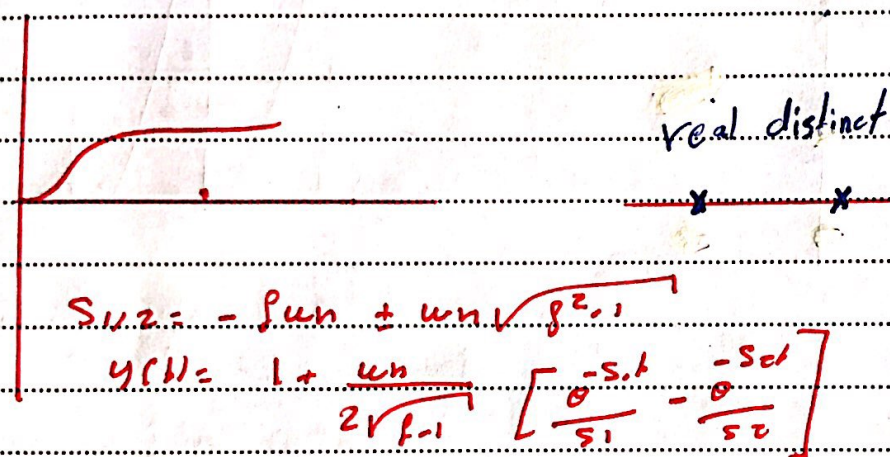 real distinct
S1,2 = - ζωn ± ωn√ζ²-1
y(t) = 1 + ωn / 2√ζ-1 [ e^-S1t / s1 - e^-S2t / s2 ]